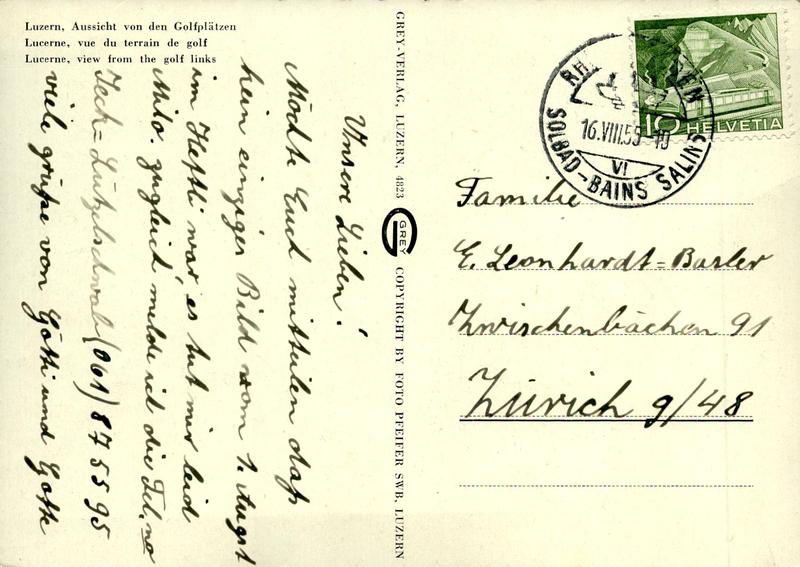 Luzern, Aussicht von den Golfplätzen
Lucerne, vue du terrain de golf
Lucerne, view from the golf links
Unsere Lieben!
Möchte Euch mitteilen daß
kein einziges Bild vom 1. Augst
im Heftli war, es tut mir leid
zugleich melde ich die Tel. no
(061) 875595
viele grüße von Götti und Gotte
GREY-VERLAG, LUZERN, 4823
GREY
COPYRIGHT BY FOTO PFEIFER SWB, LUZERN
16.VIII.55-19
VI
SOLBAD-BAINS SALINS
10 HELVETIA
Familie
E. Leonhardt=Basler
Zwischenbächen 91
Zürich 9/48